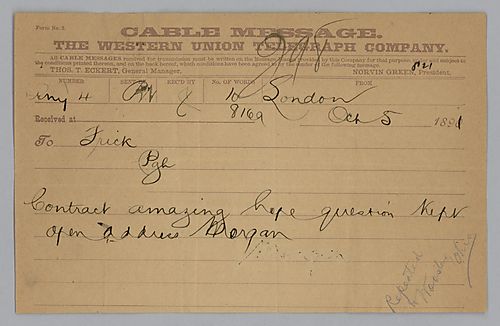 Form No. 2.
CABLE MESSAGE.
THE WESTERN UNION TELEGRAPH COMPANY.
ALL CABLE MESSAGES received for transmission must be written on the Message Blanks provided by this Company for that purpose, and subject to
the conditions printed thereon, and on the back hereof, which conditions have been agreed to by the sender of the following message.
THOS. T. ECKERT, General Manager, NORVIN GREEN, President.
821
NUMBER REC'D BY No. OF WORDS FROM
4 10 London
8169
Received at Oct 5 1891
To Frick
Pgh
Contract amazing hope question kept
open address Morgan
Repeated